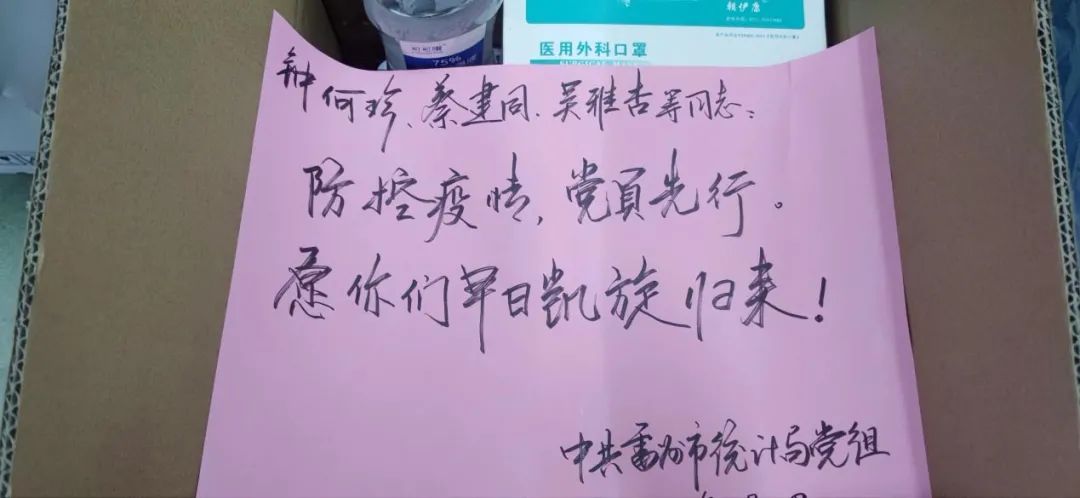 朝伊康
医用外科口罩
75%
钟何珍、蔡建同、吴雅杏等同志：
防控疫情，党員先行。
愿你们早日凯旋归来！
中共雷州市统计局党组